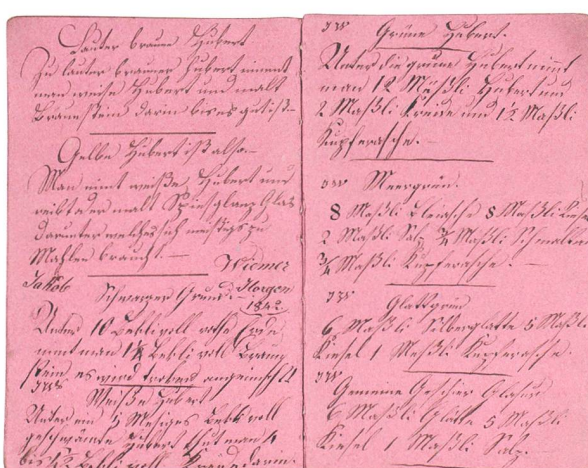 Lauter braune Hubert
Zu lauter brauner Hubert nimmt
man weise Hubert und malt
Braunstein darin bis es gut ist
Gelbe Hubert ist also
Man nimt weiße Hubert und
reibt oder malt Spiesglanz Glas
darunter welches sich
Mahlen braucht.
Wiemer
Jakob
Horgen
Schwarzer Grund.
1842.
Unter 10 Kebli voll rothe Erde
nimt man 1½ Kebli voll Braun
stein es wird trocken angemischt
Weisse Hubert
Unter ein Mesiges Kebli voll
geschlämte Hubert thut man
bis Kebli voll darin.
Grüne Hubert.
Unter die grüne Hubert nimmt
man 12 Meßli Hubert und
2 Maßli Kreide und 1½ Maßli
Kupferasche.
Meergrün.
8 Maßli Bleiasche 8 Maßli
2 Maßli Salz ¾ Maßli Schmalten
¾ Maßli Kupferasche.
Glattgrün
6 Maßli Silberglatte 5 Maßli
Kiesel 1 Meßli Kupferasche.
Gemeine Geschier Glasur
6 Maßli Glätte 5 Maßli
Kiesel 1 Maßli Salz.